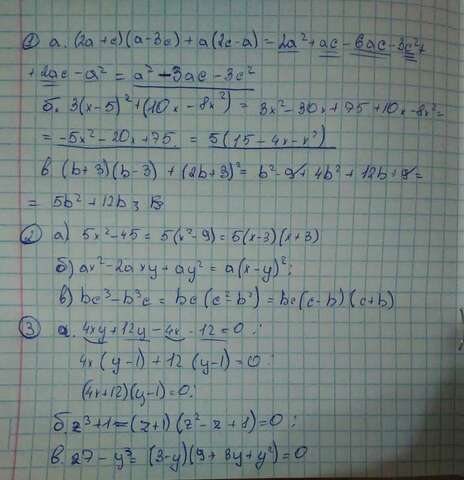 ① а. (2a+c)(a-3c)+a(2c-a)=2a²+ac-6ac-3c²+
+2ac-a²=a²-3ac-3c²
б. 3(x-5)²+(10x-8x²)=3x²-30x+75+10x-8x²=
=-5x²-20x+75=5(15-4x-x²)
в. (b+3)(b-3)+(2b+3)²=b²-9+4b²+12b+9=
=5b²+12b;
② а) 5x²-45=5(x²-9)=5(x-3)(x+3)
б) ax²-2axy+ay²=a(x-y)²;
в) bc³-b³c=bc(c²-b²)=bc(c-b)(c+b)
③ а. 4xy+12y-4x-12=0;
4x(y-1)+12(y-1)=0;
(4x+12)(y-1)=0;
б. z³+1=(z+1)(z²-z+1)=0;
в. 27-y³=(3-y)(9+3y+y²)=0